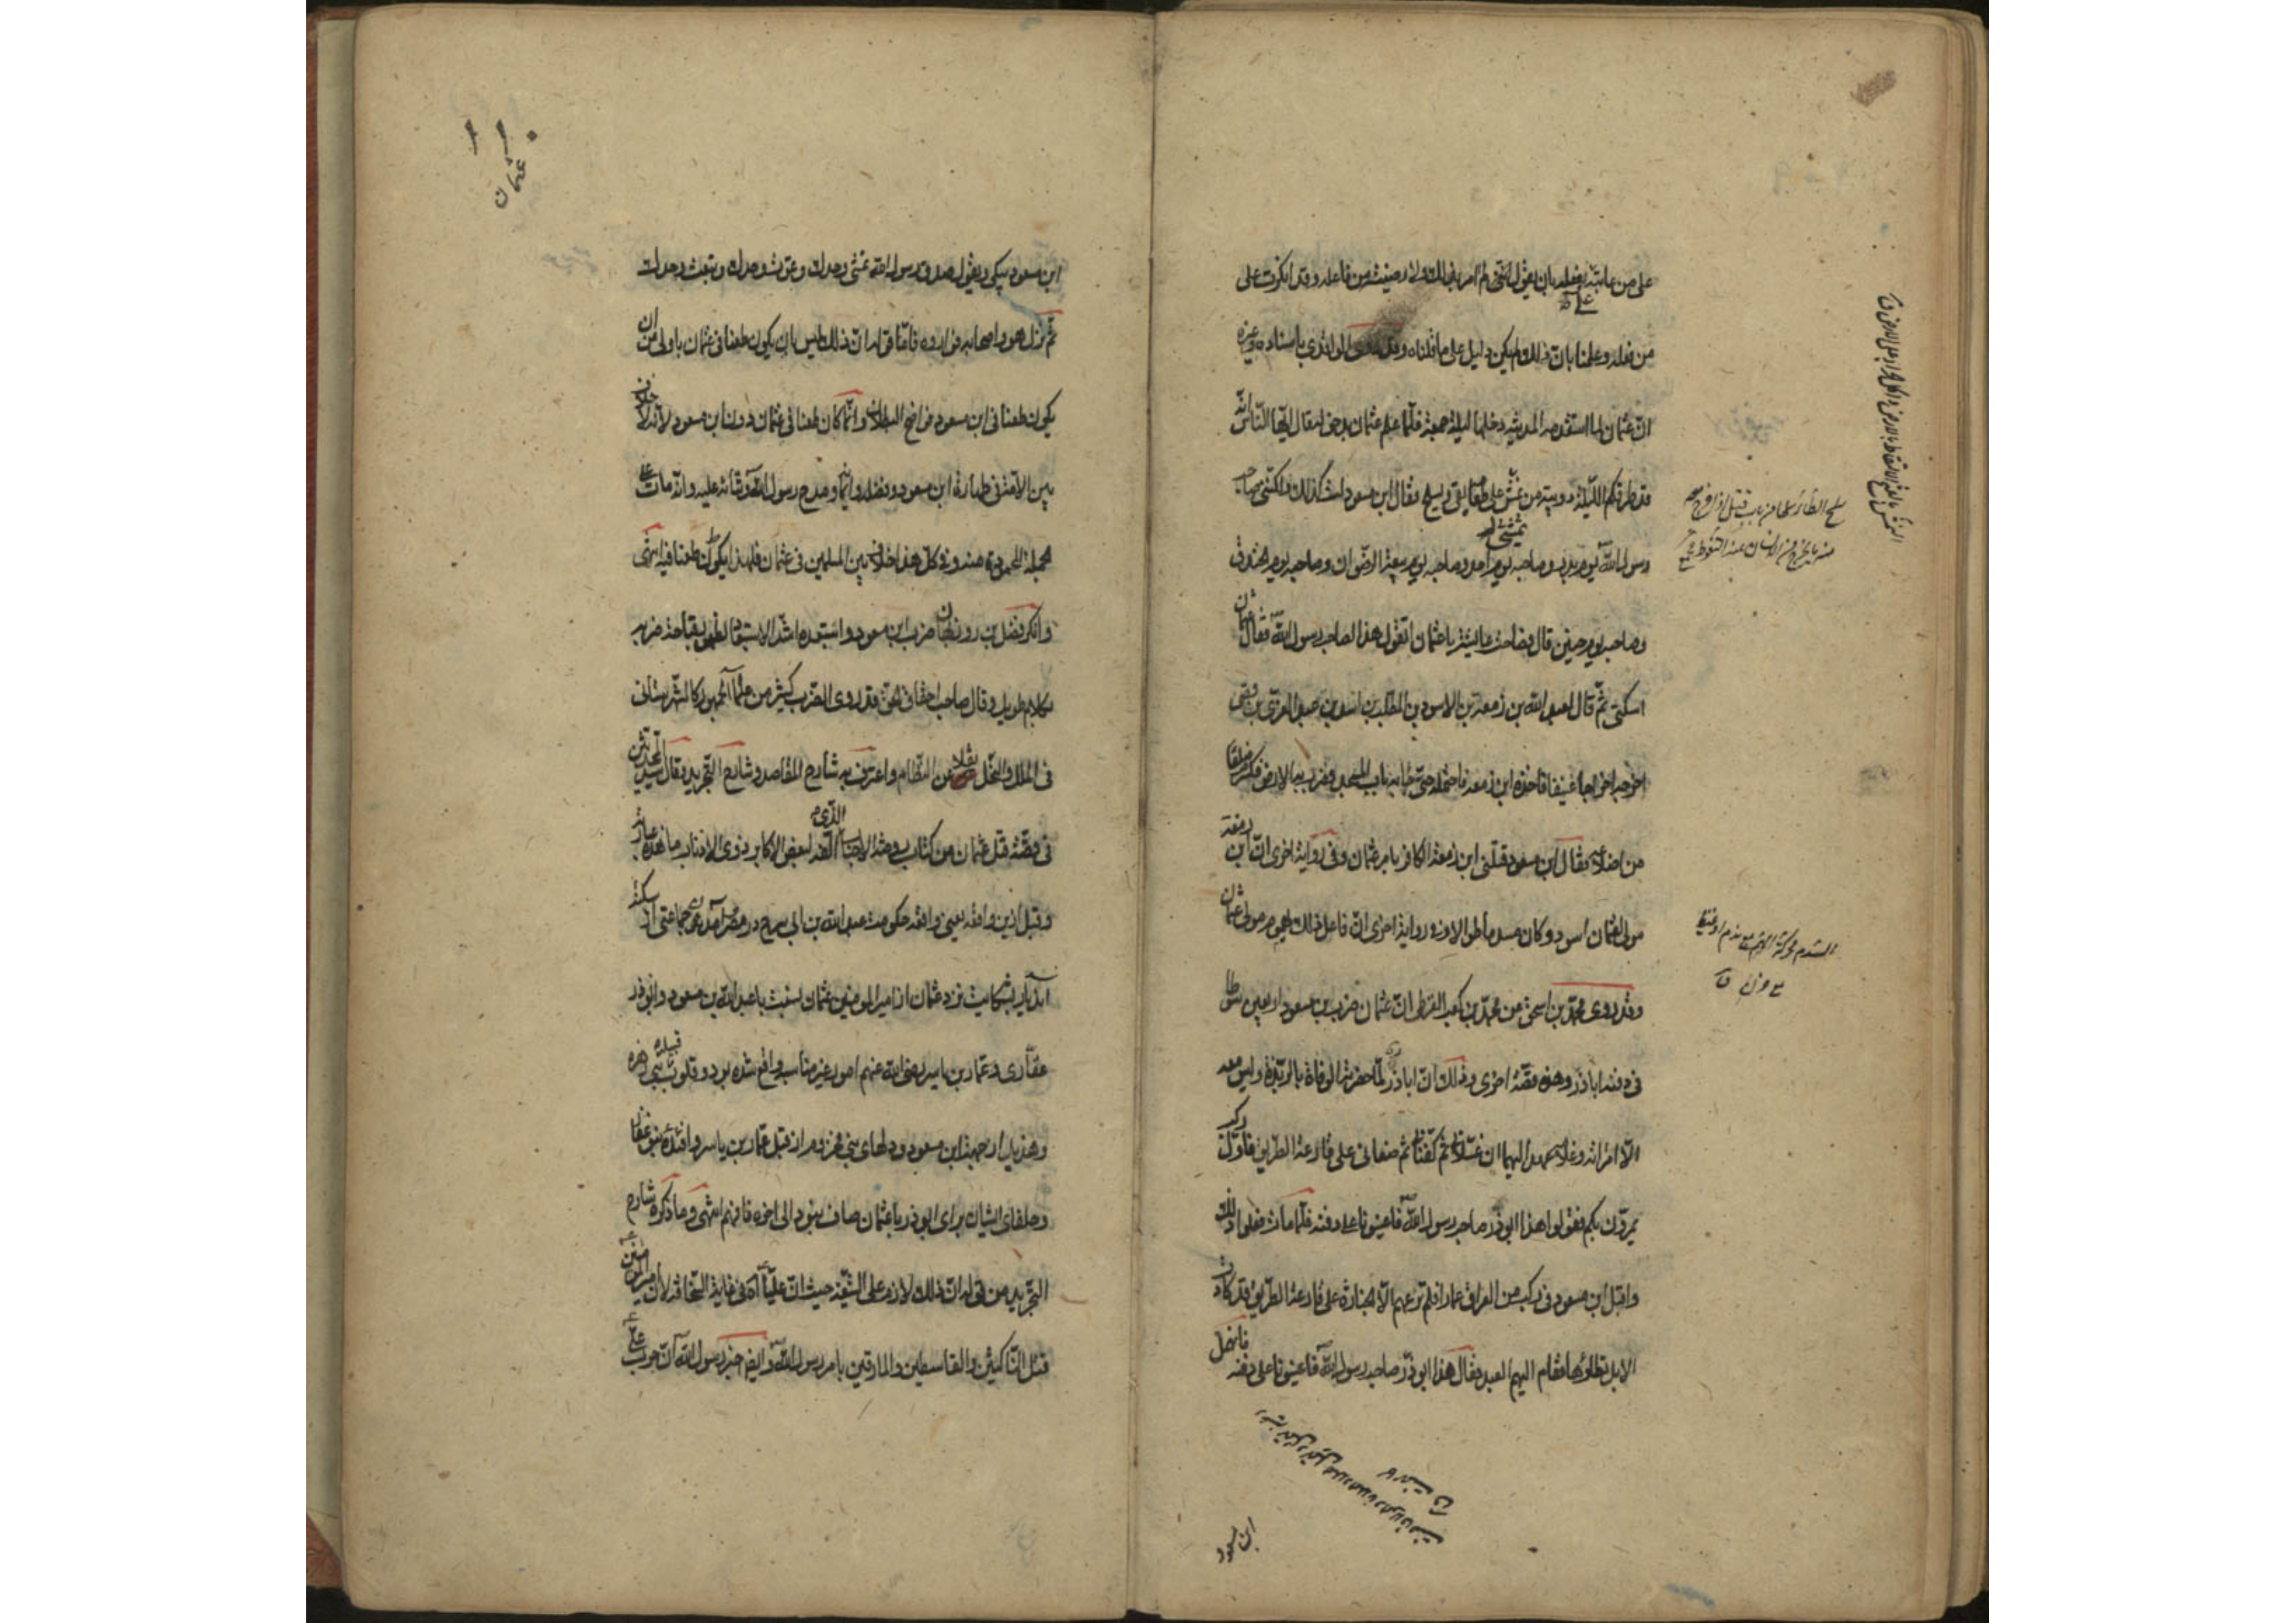 على من عاتبه بفعله بان يقول انني لم امر بذلك ولا رضيت من فاعله وقد انكرت على
من فعله وعلمنا بان ذلك لم يكن دليل على ما قلناه وقد روى الواقدي باسناده وغيره
ان عثمان لما استقدمه المدينة دخلها ليلة جمعة فلما علم عثمان بدخوله قال ايها الناس انه
قد طرقكم الليلة دويبة من تمشي على طعامه يقئ ويسلح فقال ابن مسعود لست كذلك ولكنني صاحب
رسول الله يوم بدر وصاحبه يوم احد وصاحبه يوم بيعة الرضوان وصاحبه يوم الخندق
وصاحبه يوم حنين قال وصاحت عايشة يا عثمان اتقول هذا لصاحب رسول الله فقال عثمان
اسكتي ثم قال لعبد الله بن زمعة بن الاسود بن المطلب بن اسد بن عبد العزى بن قصي
اخرجه اخراجا عنيفا فاخذه ابن زمعة فاحتمله حتى جاء به باب المسجد وضرب به الارض فكسر ضلعا
من اضلاعه فقال ابن مسعود قتلني ابن زمعة الكافر بامر عثمان وفي رواية اخرى ان ابن زمعة
مولى لعثمان اسود وكان مسدما طوالا وفي رواية اخرى ان فاعل ذلك يحموم مولى عثمان
وقد روى محمد بن اسحق عن محمد بن كعب القرظي ان عثمان ضرب ابن مسعود اربعين سوطا
في دفنه اباذر وهذه قصة اخرى وذلك ان اباذر لما حضرته الوفاة بالربذة وليس معه
الا امراته وغلامه عهد اليهما ان غسلاني ثم كفناني ثم ضعاني على قارعة الطريق فاول ركب
يمرون بكم فقولوا هذا ابوذر صاحب رسول الله فاعينونا على دفنه فلما مات فعلوا ذلك
واقبل ابن مسعود في ركب من العراق عمارا فلم ترعهم الا الجنازة على قارعة الطريق قد كادت
الابل تطاؤها فقام اليهم العبد فقال هذا ابو ذر صاحب رسول الله فاعينونا على دفنه فانهل
ابن مسعود
عثمان
ابن مسعود يبكي ويقول صدق رسول الله تمشي وحدك وتموت وحدك وتبعث وحدك
ثم نزل هو واصحابه فواروه فاما قوله ان ذلك ليس بان يكون طعنا في عثمان باولى من ان
يكون طعنا في ابن مسعود فواضح البطلان وانما كان طعنا في عثمان دون ابن مسعود لانه لا خلاف
بين الامة في طهارة ابن مسعود وفضله وايمانه ومدح رسول الله وثنائه عليه وانه مات على
الجملة المحمودة منه وفي كل هذا خلاف بين المسلمين في عثمان فلهذا يكون طعنا فيه انتهى
وانكر فضل بن روزبهان ضرب ابن مسعود واستبعده اشد الاستبعاد
بكلام طويل وقال صاحب احقاق الحق قد روى الضرب كثير من علماء الجمهور كالشهرستاني
في الملل والنحل نقلا عن النظام واعترف به شارح المقاصد وشارح التجريد وقال سيد المحدثين
في قصة قتل عثمان من كتاب روضة الاحباب الذي الفه لبعض الاكابر ذوي الاذناب ما هذه عبارته
وقبل ازين واقعه يعني واقعه حكومت عبد الله بن ابي سرح در مصر آمدن جماعتي از سكنه
آن ديار بشكايت نزد عثمان از امير المومنين عثمان نسبت با عبد الله بن مسعود وابوذر
غفاري وعمار بن ياسر رضي الله عنهم امور غير مناسب واقع شده بود وقلوب بني زهره
وهذيل از جهت ابن مسعود ودلهاي بني مخزوم از قبل عمار بن ياسر وافئده بنو غفار
وحلفاي ايشان براي ابوذر با عثمان صاف نبود الى اخره فافهم انتهى وما ذكره شارح
التجريد من قوله ان ذلك لازم على الشيعة حيث ان عليا آه في غاية السخافة لان امير المومنين
قتل الناكثين والقاسطين والمارقين بامر رسول الله وايضا خبر رسول الله ان حرب علي